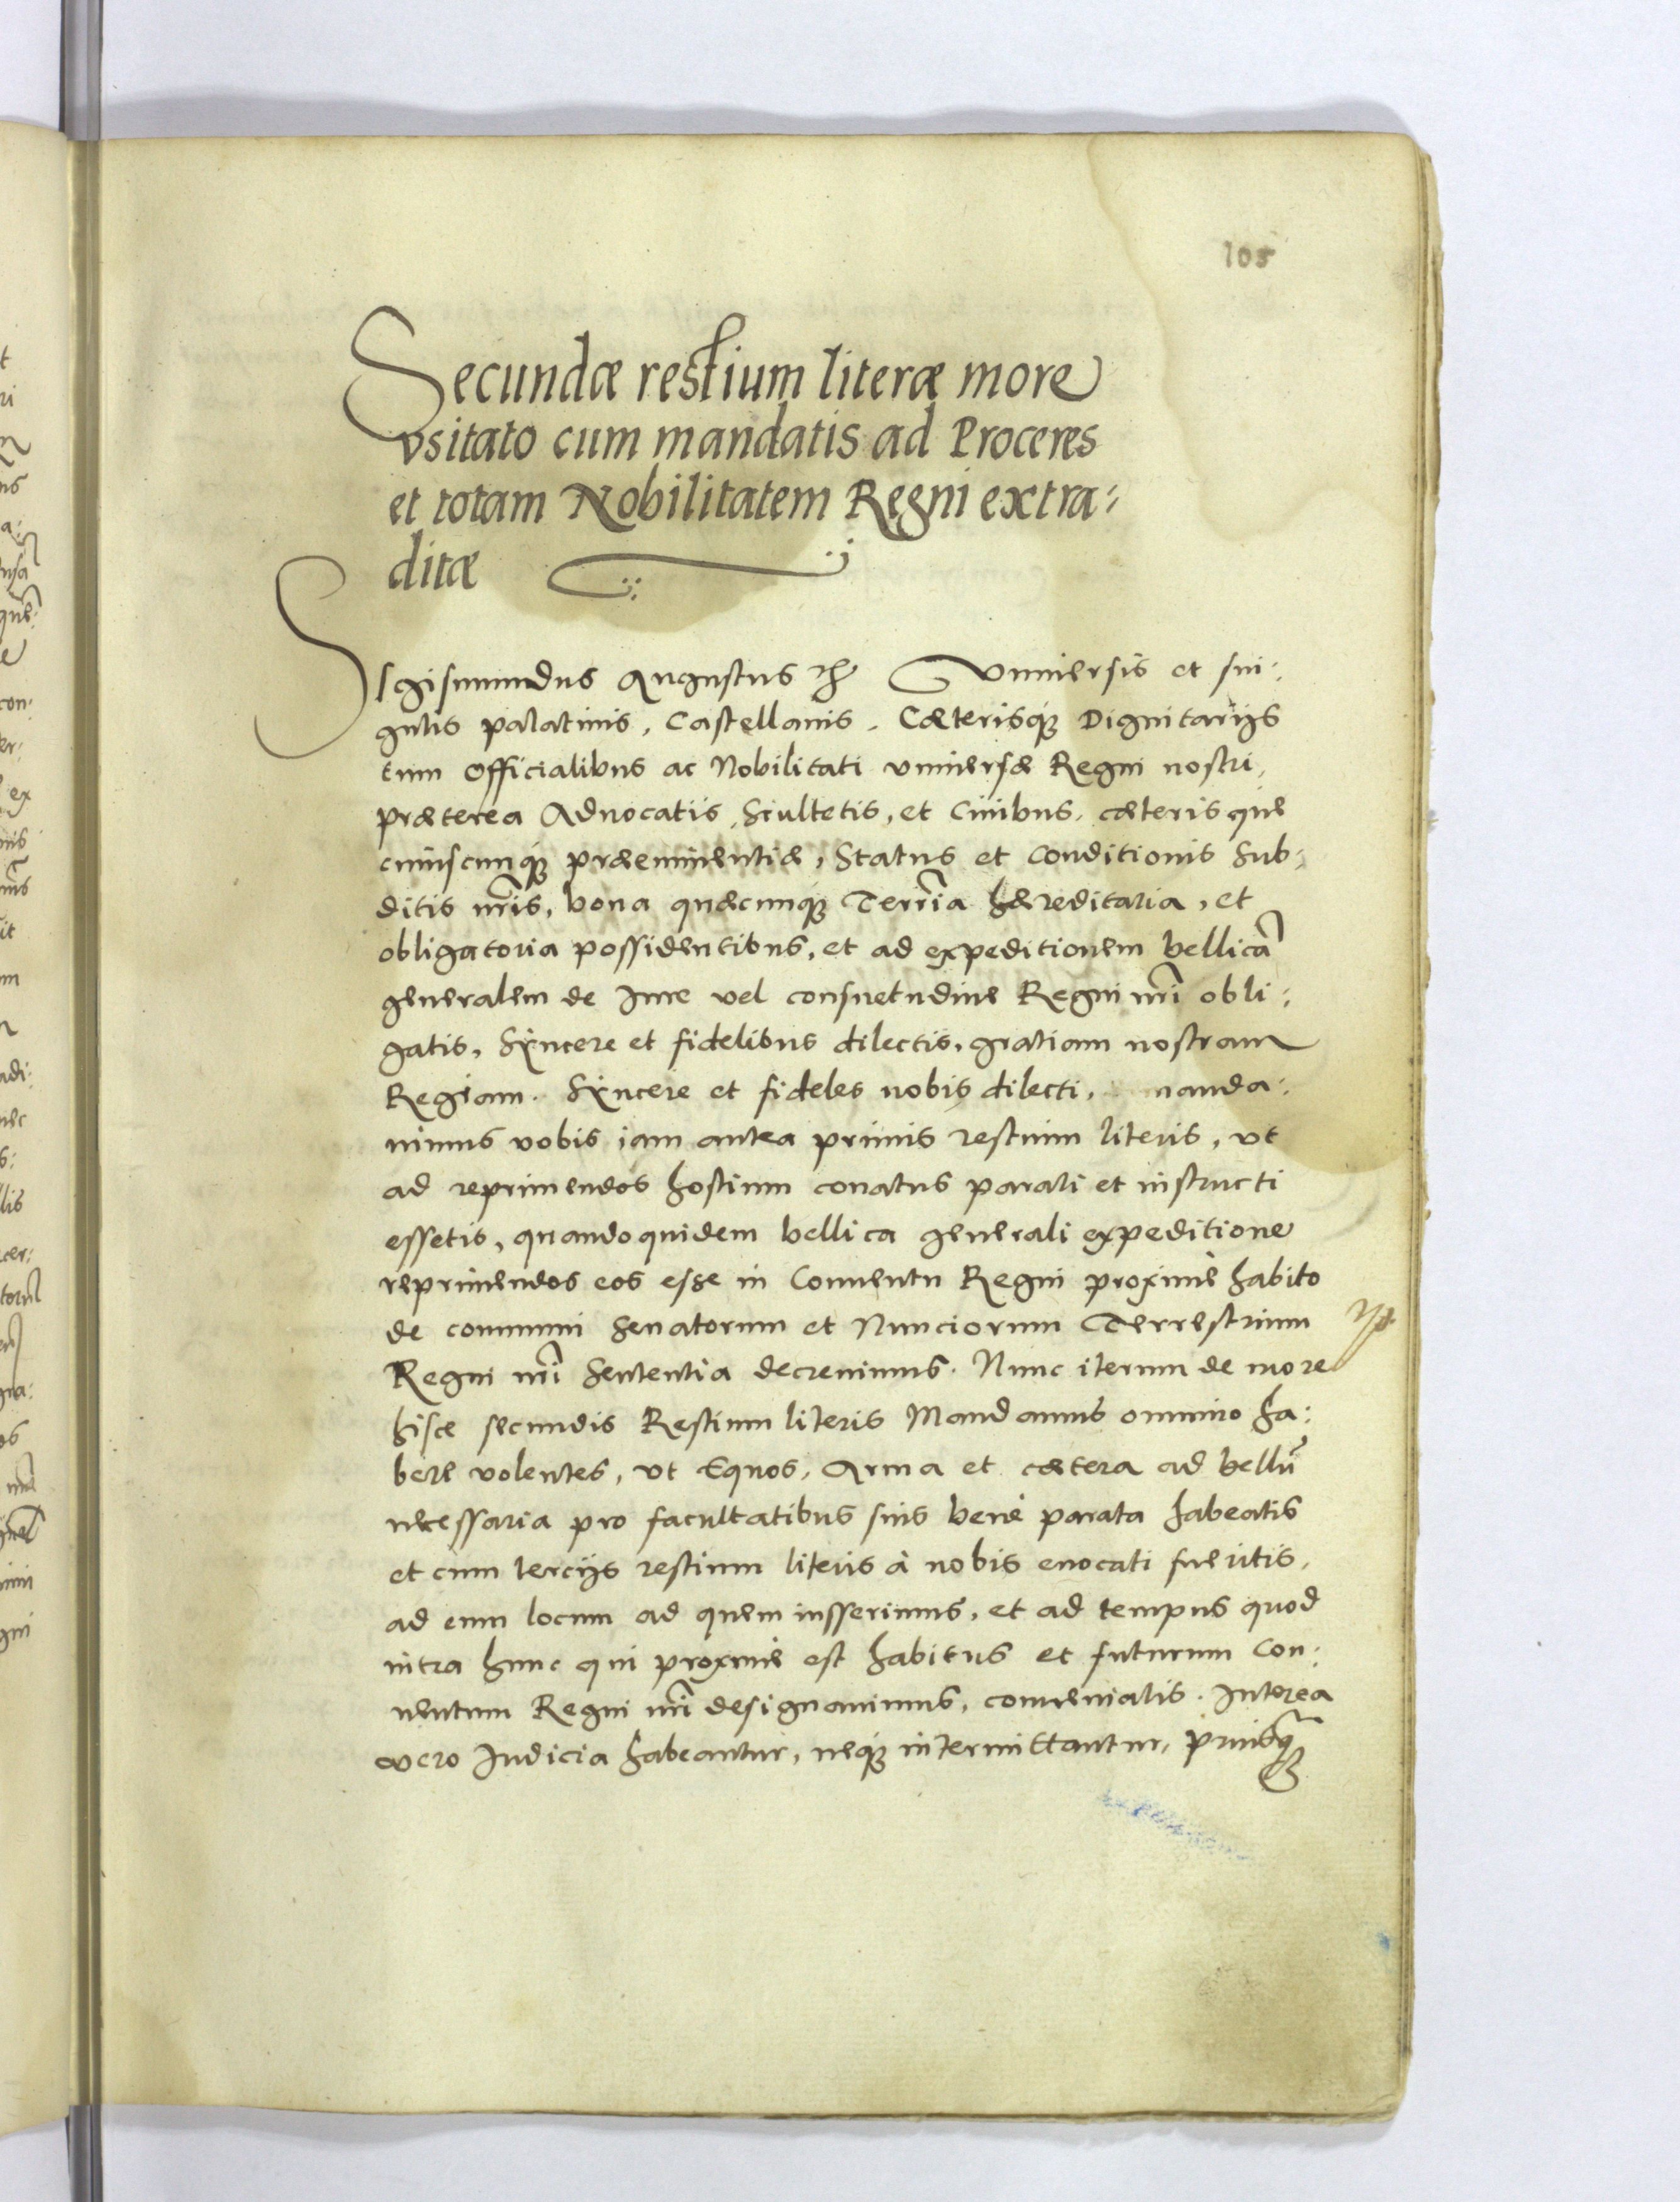 105
Secundæ restium literæ more
vsitato cum mandatis ad Proceres
et totam Nobilitatem Regni extra:
ditæ
Sigismundus Augustus Vniuersis et sin:
gulis palatinis, Castellanis, Cæterisq3 Dignitarijs
tum Officialibus ac Nobilitati vniuersæ Regni nostri,
præterea Aduocatis, Scultetis, et Ciuibus, cæterisque
cuiuscunq3 præeminentiæ, Status et Conditionis Sub:
ditis nr̃is, bona quæcunq3 Terr̃ia hæreditaria, et
obligatoria possidentibus, et ad expeditionem bellicã
generalem de Iure vel consuetudine Regni nr̃i obli:
gatis, Syncere et fidelibus dilectis, gratiam nostram
Regiam. Syncere et fideles nobis dilecti, manda:
uimus vobis iam antea primis restium literis, vt
ad reprimendos hostium conatus parati et instructi
essetis, quandoquidem bellica generali expeditione
reprimendos eos esse in Conuentu Regni proximè habito
de communi Senatorum et Nunciorum Terrestrium
Regni nr̃i Sententia decreuimus. Nunc iterum de more
hisce secundis Restium literis Mandamus omnino ha:
bere volentes, vt Equos, Arma et cætera ad bellũ
necessaria pro facultatibus suis benè parata habeatis
et cum tercijs restium literis à nobis euocati fueritis,
ad eum locum ad quem iusserimus, et ad tempus quod
intra hunc qui proximè est habitus et futurum Con:
uentum Regni nr̃i designauimus, conueniatis. Interea
vero Iudicia habeantur, neq3 intermittantur, priusq̃3